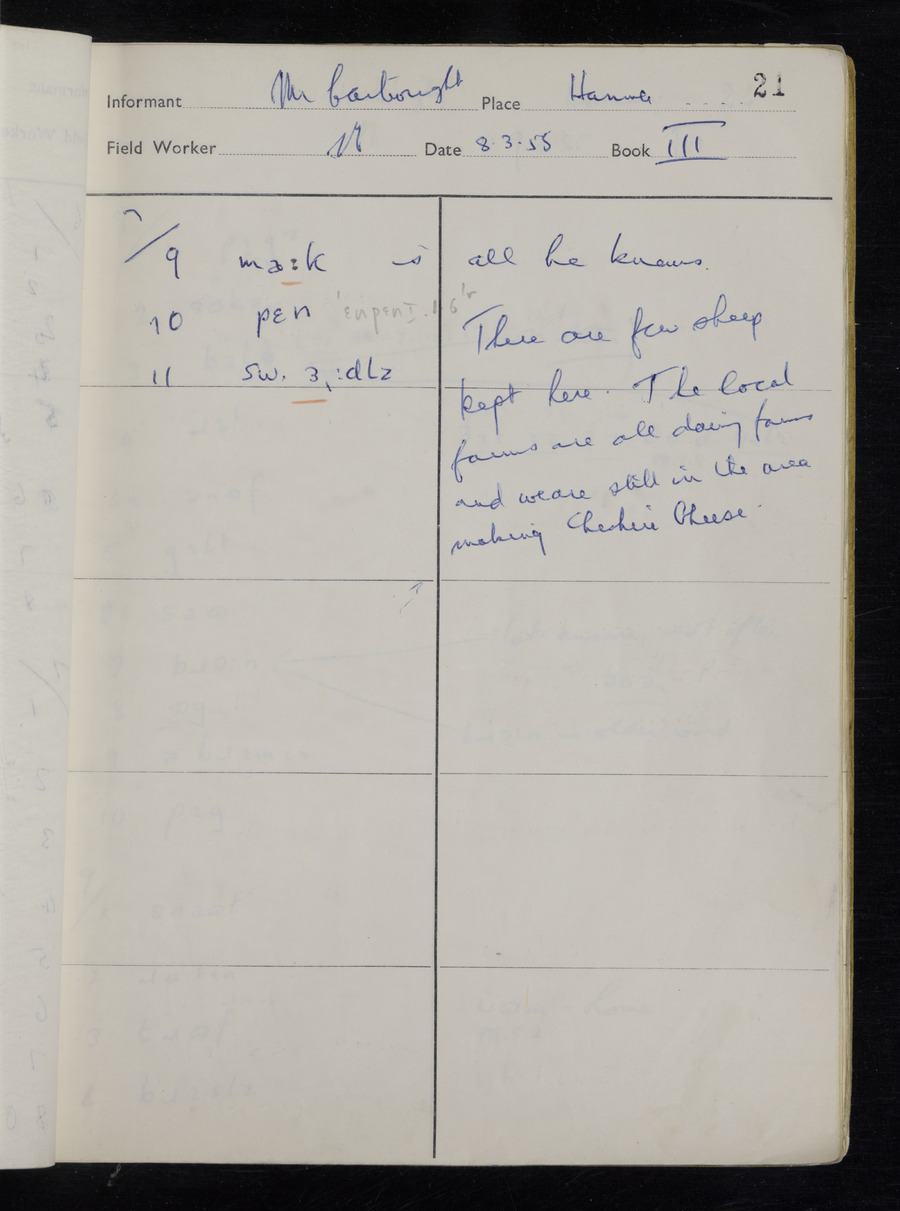 21
Informant Mr Cartwright Place Hanmer
Field Worker Date 8.3.55 Book III
7/9 ma:k is all he knows.
10 pɛn
There are few sheep
11 sw. ɜ:dLz
kept here. The local
farms are all dairy farms
and we are still in the area
making Cheshire Cheese.